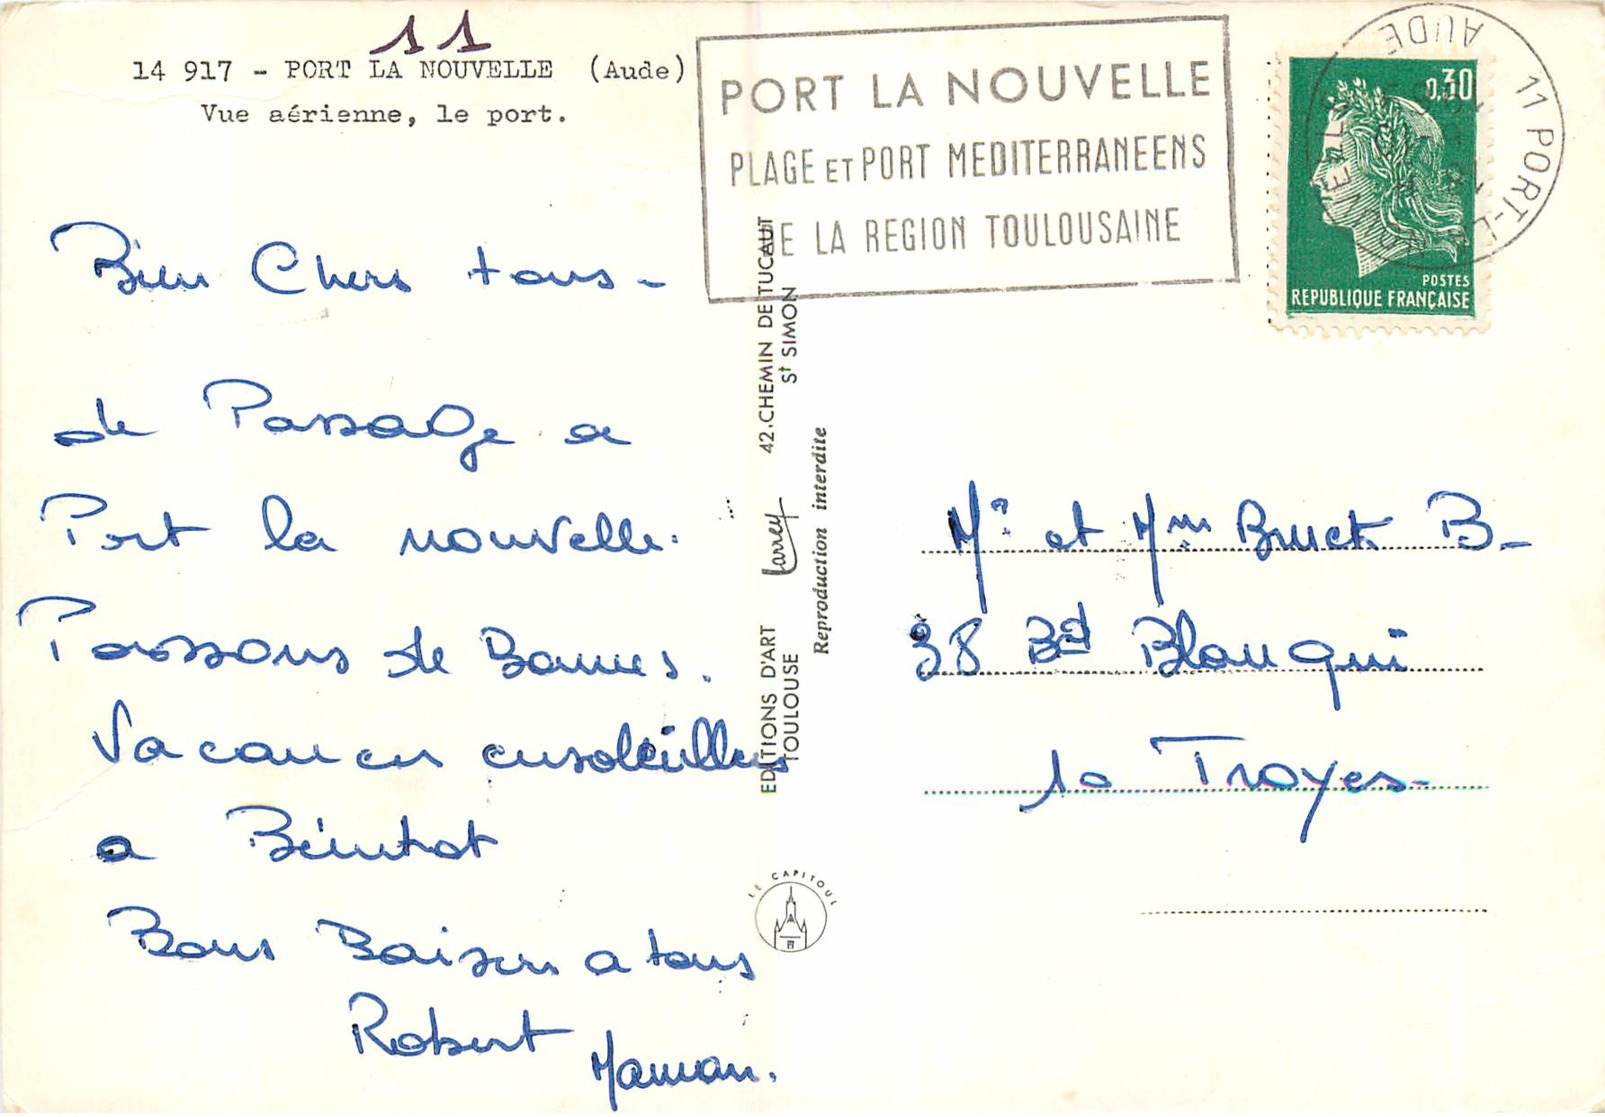 11
14 917 - PORT LA NOUVELLE (Aude)
Vue aérienne, le port.
Bien Chers tous -
de Passage a
Port la nouvelle.
Passons de Bonnes.
Vacances ensoleillées
a Bientot
Bons Baisers a tous
Robert Maman.
PORT LA NOUVELLE
PLAGE ET PORT MEDITERRANEENS
DE LA REGION TOULOUSAINE
11 PORT-LA
AUDE
0,30
POSTES
REPUBLIQUE FRANÇAISE
EDITIONS D'ART Larrey 42.CHEMIN DE TUCAUT
TOULOUSE St SIMON
Reproduction interdite
LE CAPITOUL
Mr et Mme Bruet B-
38 Bd Blanqui
10 Troyes-